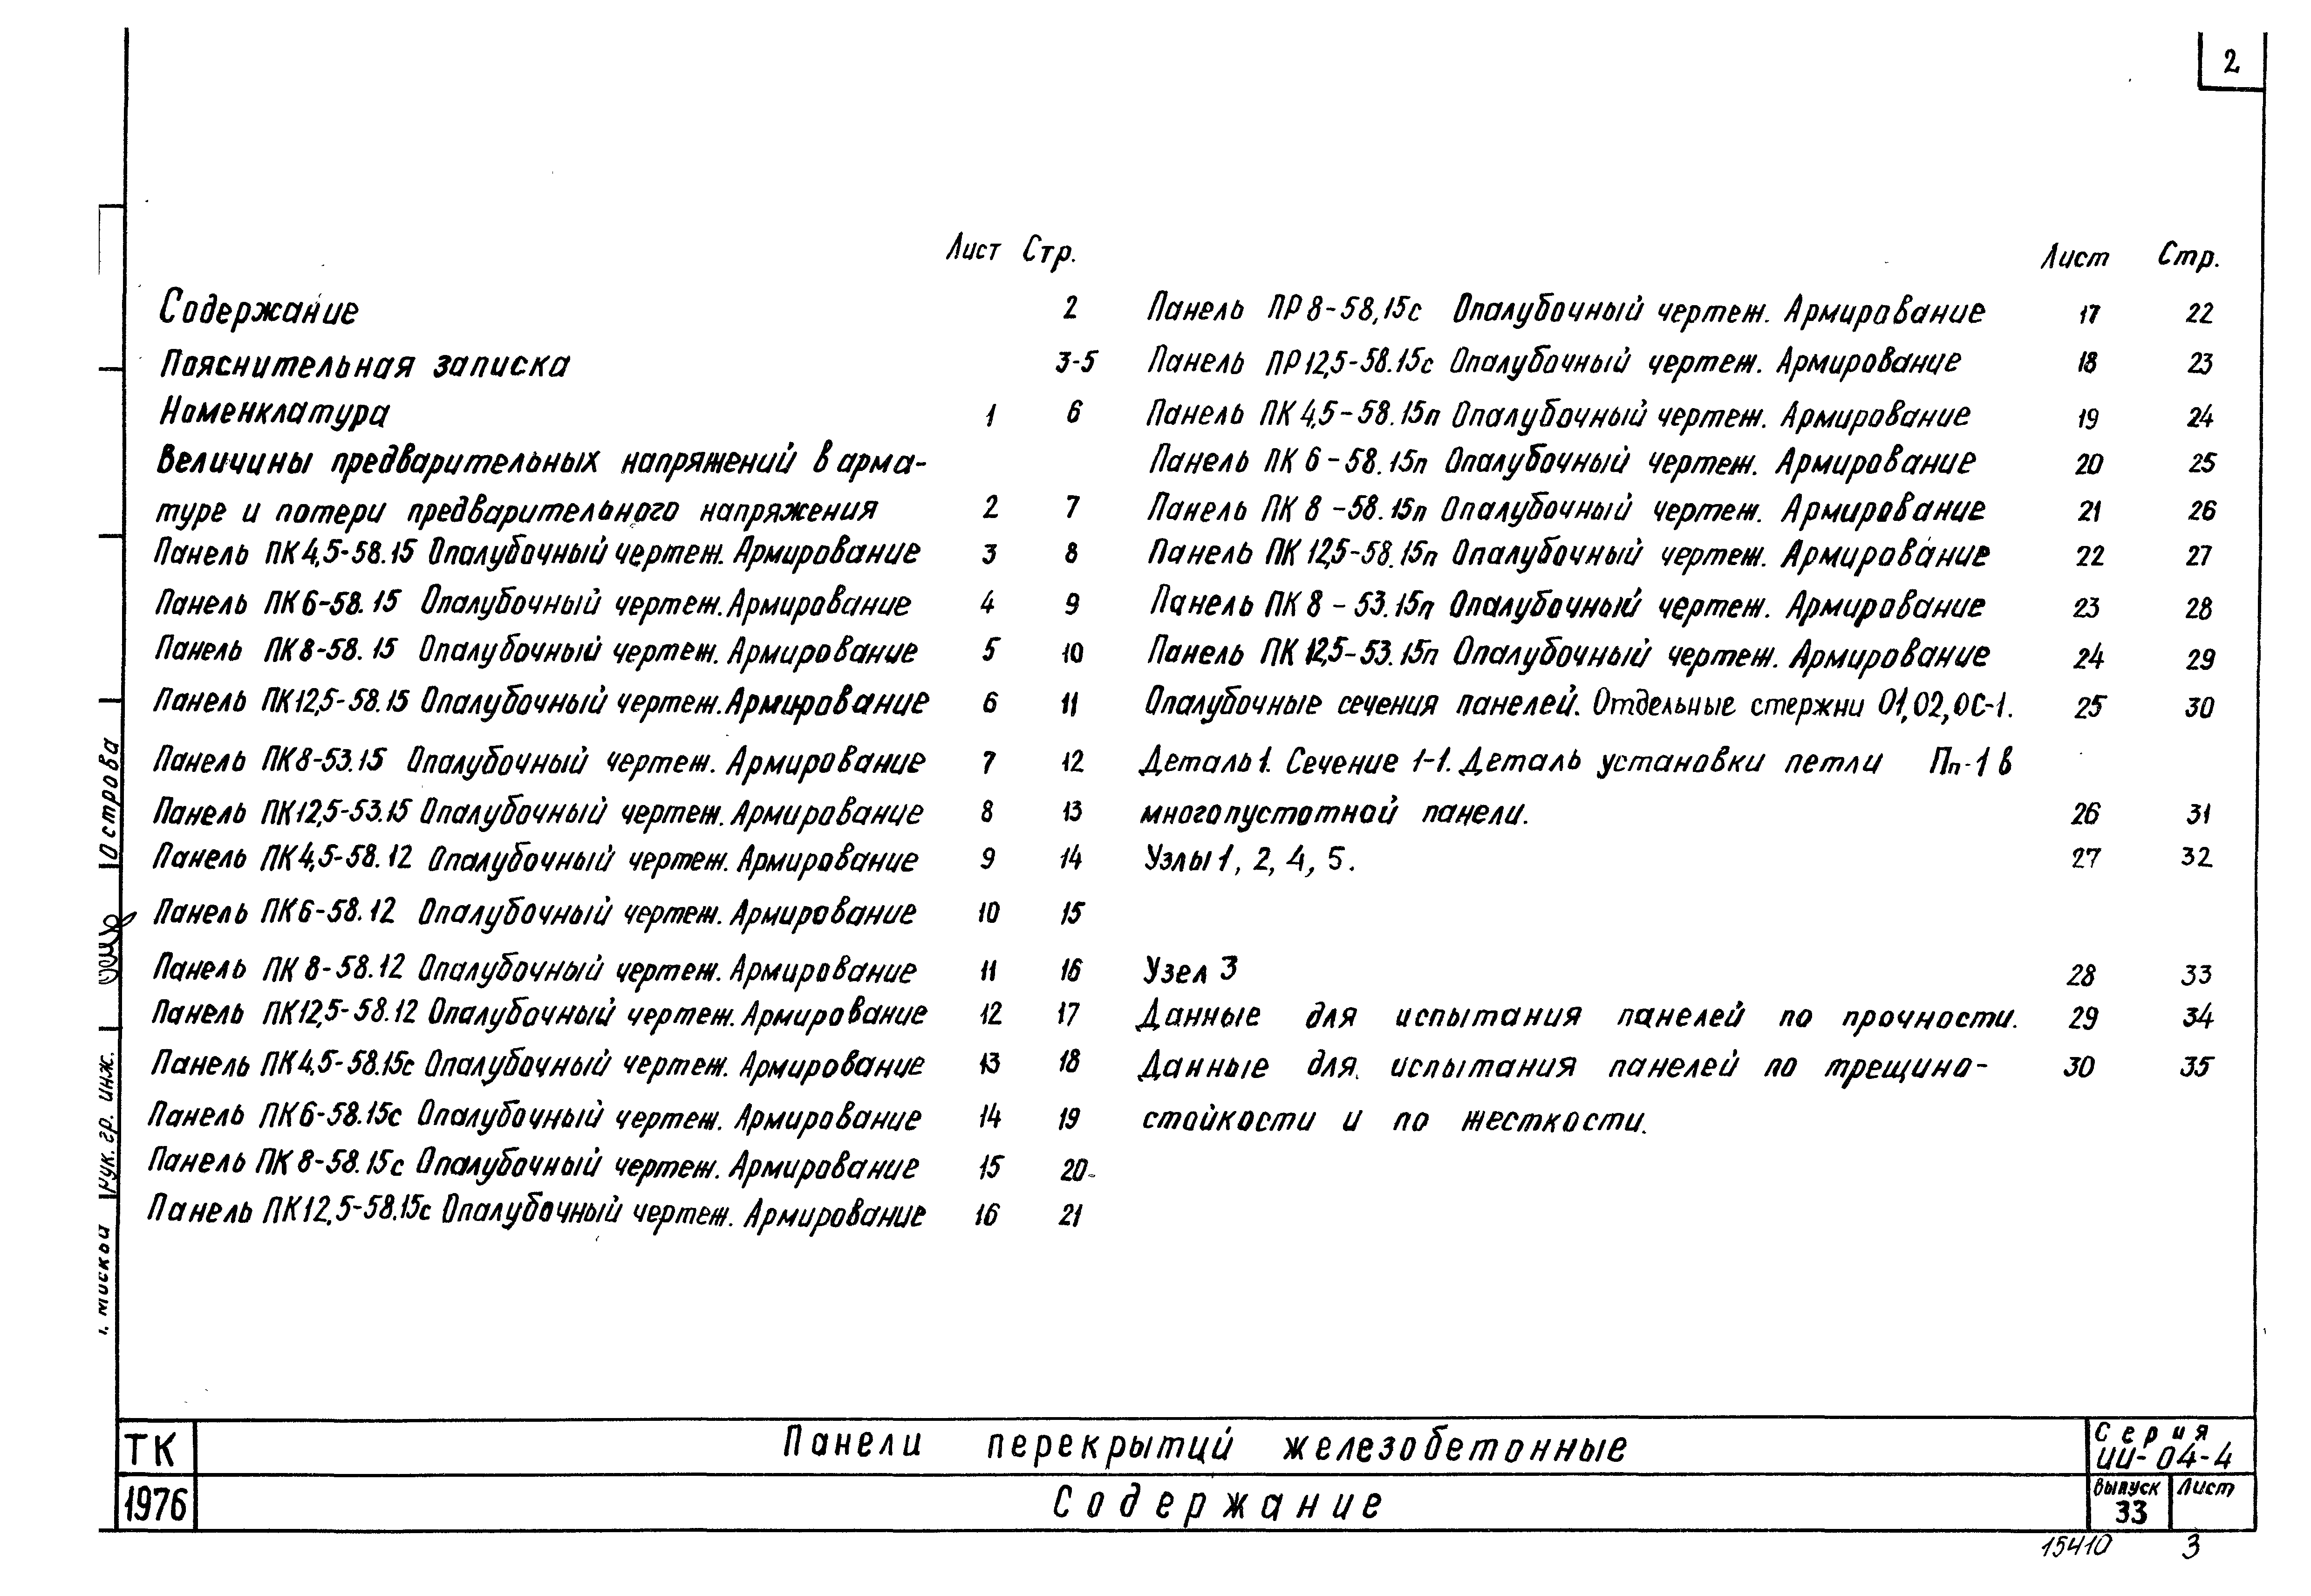 2
Лист Стр.
Содержание 2
Пояснительная записка 3-5
Номенклатура 1 6
Величины предварительных напряжений в арма-
туре и потери предварительного напряжения 2 7
Панель ПК4,5-58.15 Опалубочный чертеж. Армирование 3 8
Панель ПК6-58.15 Опалубочный чертеж. Армирование 4 9
Панель ПК8-58.15 Опалубочный чертеж. Армирование 5 10
Панель ПК12,5-58.15 Опалубочный чертеж. Армирование 6 11
Панель ПК8-53.15 Опалубочный чертеж. Армирование 7 12
Панель ПК12,5-53.15 Опалубочный чертеж. Армирование 8 13
Панель ПК4,5-58.12 Опалубочный чертеж. Армирование 9 14
Панель ПК6-58.12 Опалубочный чертеж. Армирование 10 15
Панель ПК8-58.12 Опалубочный чертеж. Армирование 11 16
Панель ПК12,5-58.12 Опалубочный чертеж. Армирование 12 17
Панель ПК4,5-58.15с Опалубочный чертеж. Армирование 13 18
Панель ПК6-58.15с Опалубочный чертеж. Армирование 14 19
Панель ПК8-58.15с Опалубочный чертеж. Армирование 15 20
Панель ПК12,5-58.15с Опалубочный чертеж. Армирование 16 21
Лист Стр.
Панель ПР8-58,15с Опалубочный чертеж. Армирование 17 22
Панель ПР12,5-58.15с Опалубочный чертеж. Армирование 18 23
Панель ПК4,5-58.15п Опалубочный чертеж. Армирование 19 24
Панель ПК6-58.15п Опалубочный чертеж. Армирование 20 25
Панель ПК8-58.15п Опалубочный чертеж. Армирование 21 26
Панель ПК12,5-58.15п Опалубочный чертеж. Армирование 22 27
Панель ПК8-53.15п Опалубочный чертеж. Армирование 23 28
Панель ПК12,5-53.15п Опалубочный чертеж. Армирование 24 29
Опалубочные сечения панелей. Отдельные стержни 01,02,0С-1. 25 30
Деталь 1. Сечение 1-1. Деталь установки петли Пп-1 в
многопустотной панели. 26 31
Узлы 1, 2, 4, 5. 27 32
Узел 3 28 33
Данные для испытания панелей по прочности. 29 34
Данные для испытания панелей по трещино- 30 35
стойкости и по жесткости.
Острова
рук. гр. инж.
г. Москва
ТК Панели перекрытий железобетонные Серия
ИИ-04-4
1976 Содержание выпуск Лист
33
15410 3